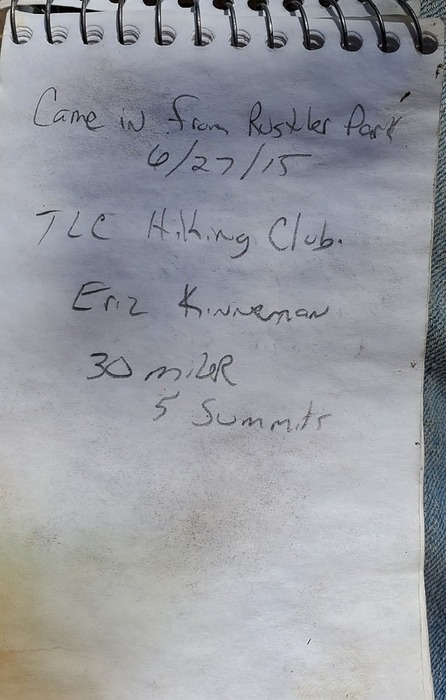 Came in from Rustler Park
6/27/15
TLC Hiking Club.
Eriz Kinneman
30 mileR
5 Summits